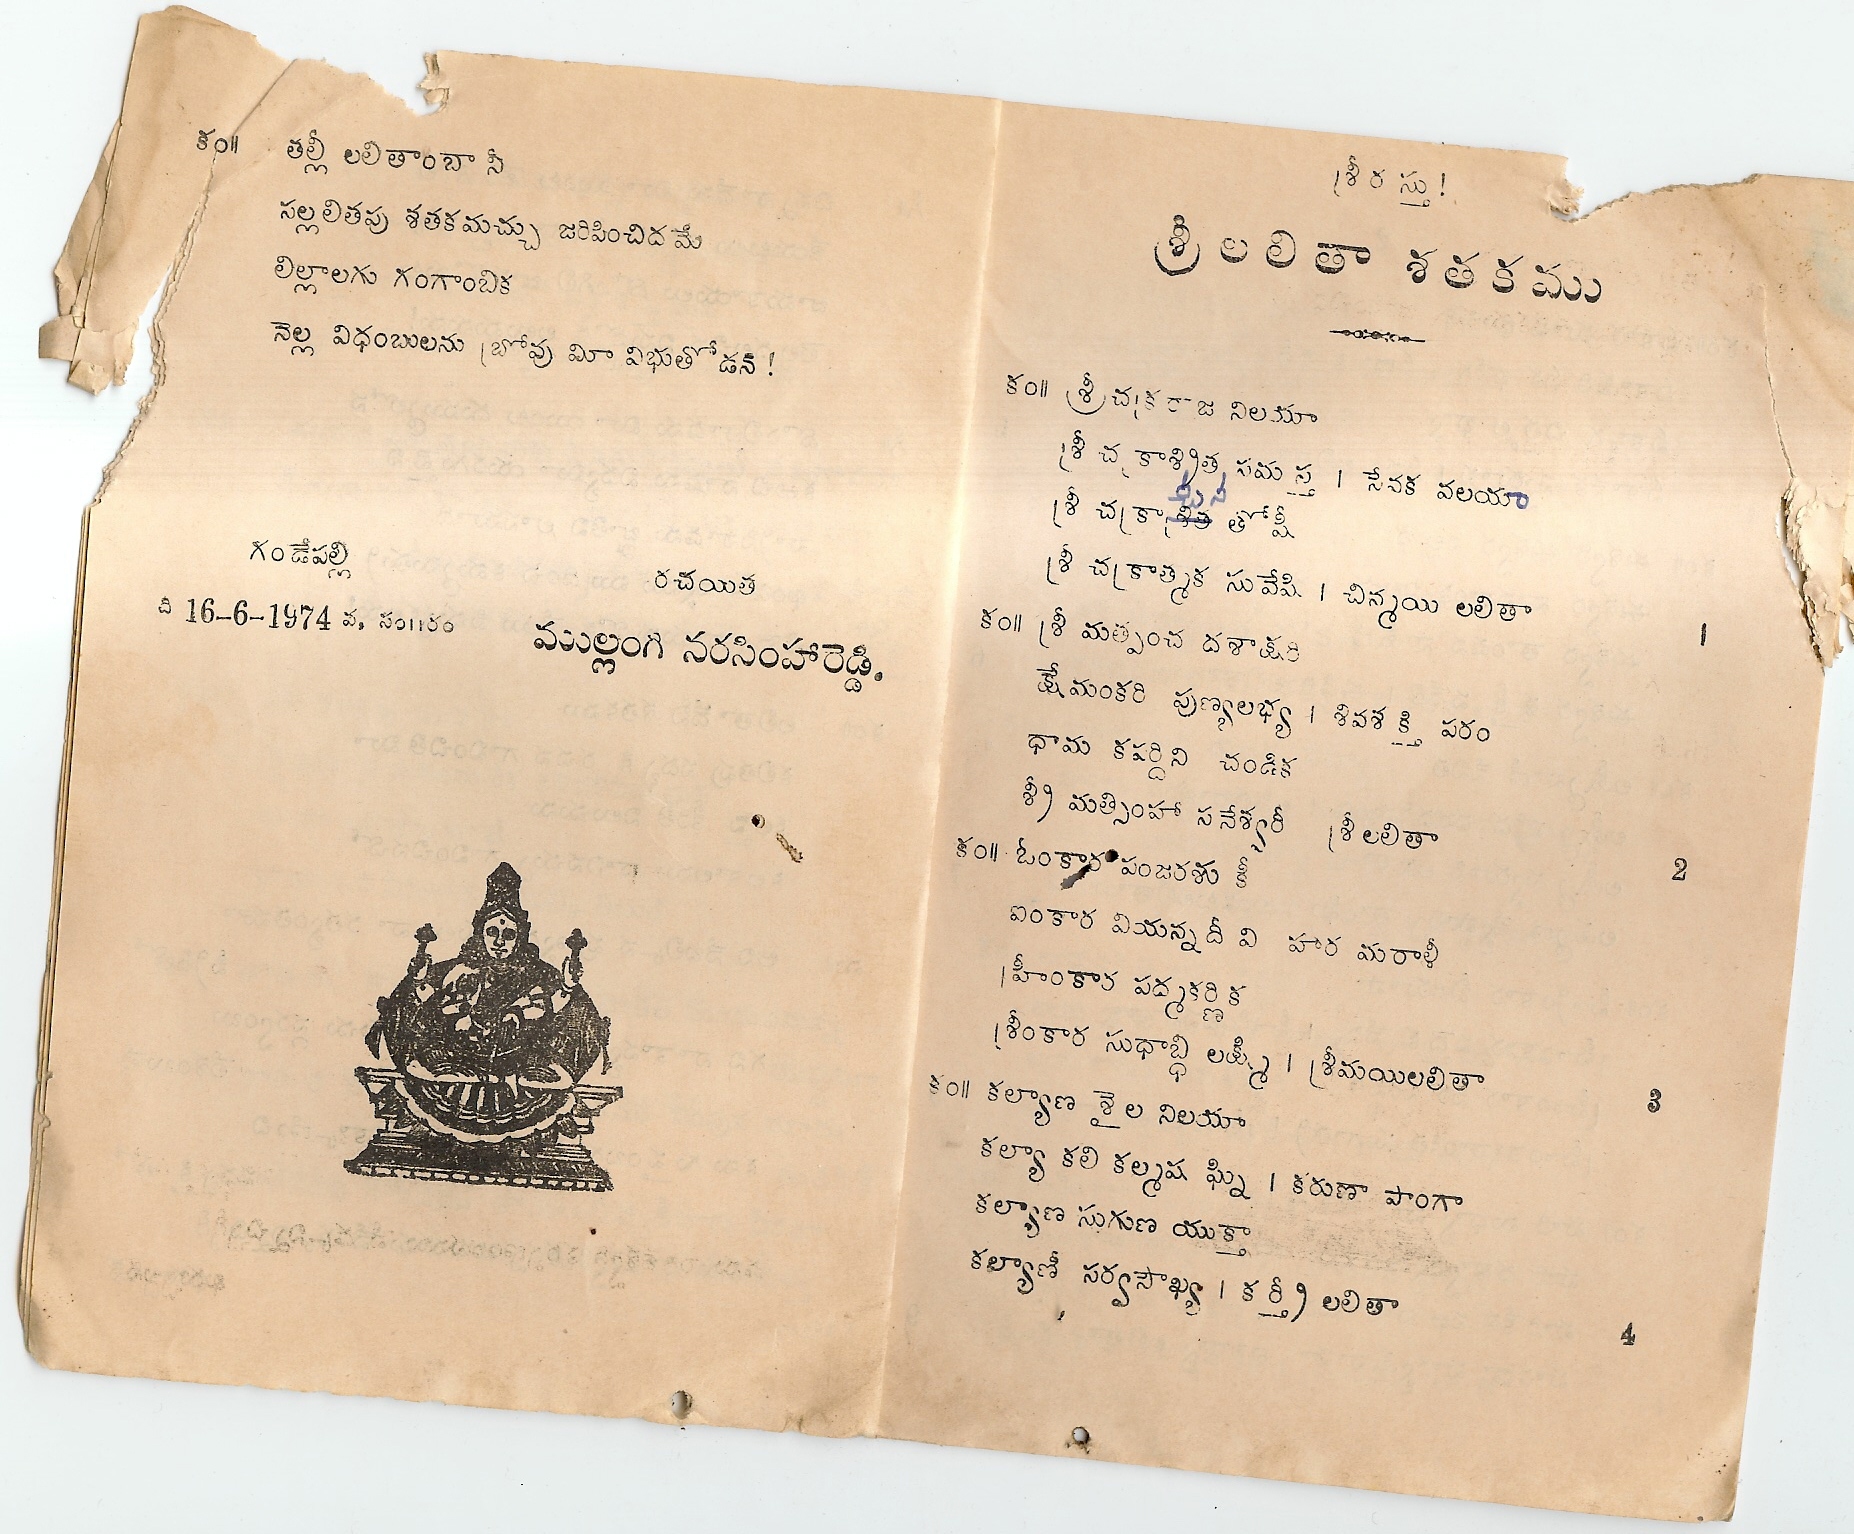 కం॥ తల్లీ లలితాంబా నీ
సల్లలితపు శతకమచ్చు జరిపించిదమే
లిల్లాలగు గంగాంబిక
నెల్ల విధంబులను బ్రోవు మీ విభుతోడన్!
గండేపల్లి
రచయిత
ది 16-6-1974 వ. సం॥రం
ముల్లంగి నరసింహారెడ్డి.
శ్రీరస్తు!
శ్రీ లలితా శతకము
కం॥ శ్రీచక్రరాజ నిలయా
శ్రీ చక్రాశ్రిత సమస్త । సేవక వలయా
శ్రీ చక్రార్చన తోషీ
శ్రీ చక్రాత్మక సువేషి । చిన్మయి లలితా
1
కం॥ శ్రీ మత్పంచ దశాక్షరి
క్షేమంకరి పుణ్యలభ్య । శివశక్తి పరం
ధామ కపర్దిని చండిక
శ్రీ మత్సింహా సనేశ్వరీ శ్రీలలితా
2
కం॥ ఓంకార పంజరశు కీ
ఐంకార వియన్నదీ వి హార మరాళీ
హ్రీంకార పద్మకర్ణిక
శ్రీంకార సుధాబ్ధి లక్ష్మి । శ్రీమయిలలితా
3
కం॥ కల్యాణ శైల నిలయా
కల్యా కలి కల్మష ఘ్ని । కరుణా పాంగా
కల్యాణ సుగుణ యుక్తా
కల్యాణీ సర్వసౌఖ్య । కర్త్రీ లలితా
4